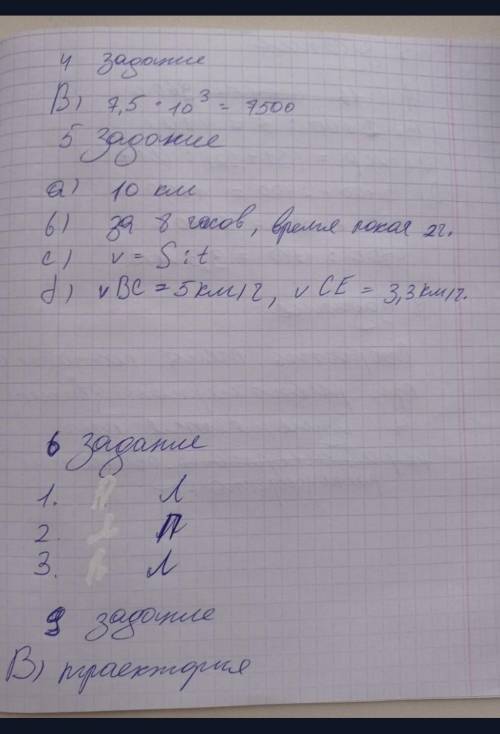 4 задание
В) 7,5 · 10³ = 7500
5 задание
а) 10 км
в) за 8 часов, время покоя 2г.
с) v = S : t
d) v BC = 5 км/ч, v CE = 3,3 км/ч.
6 задание
1. Л
2. П
3. Л
9 задание
В) траектория